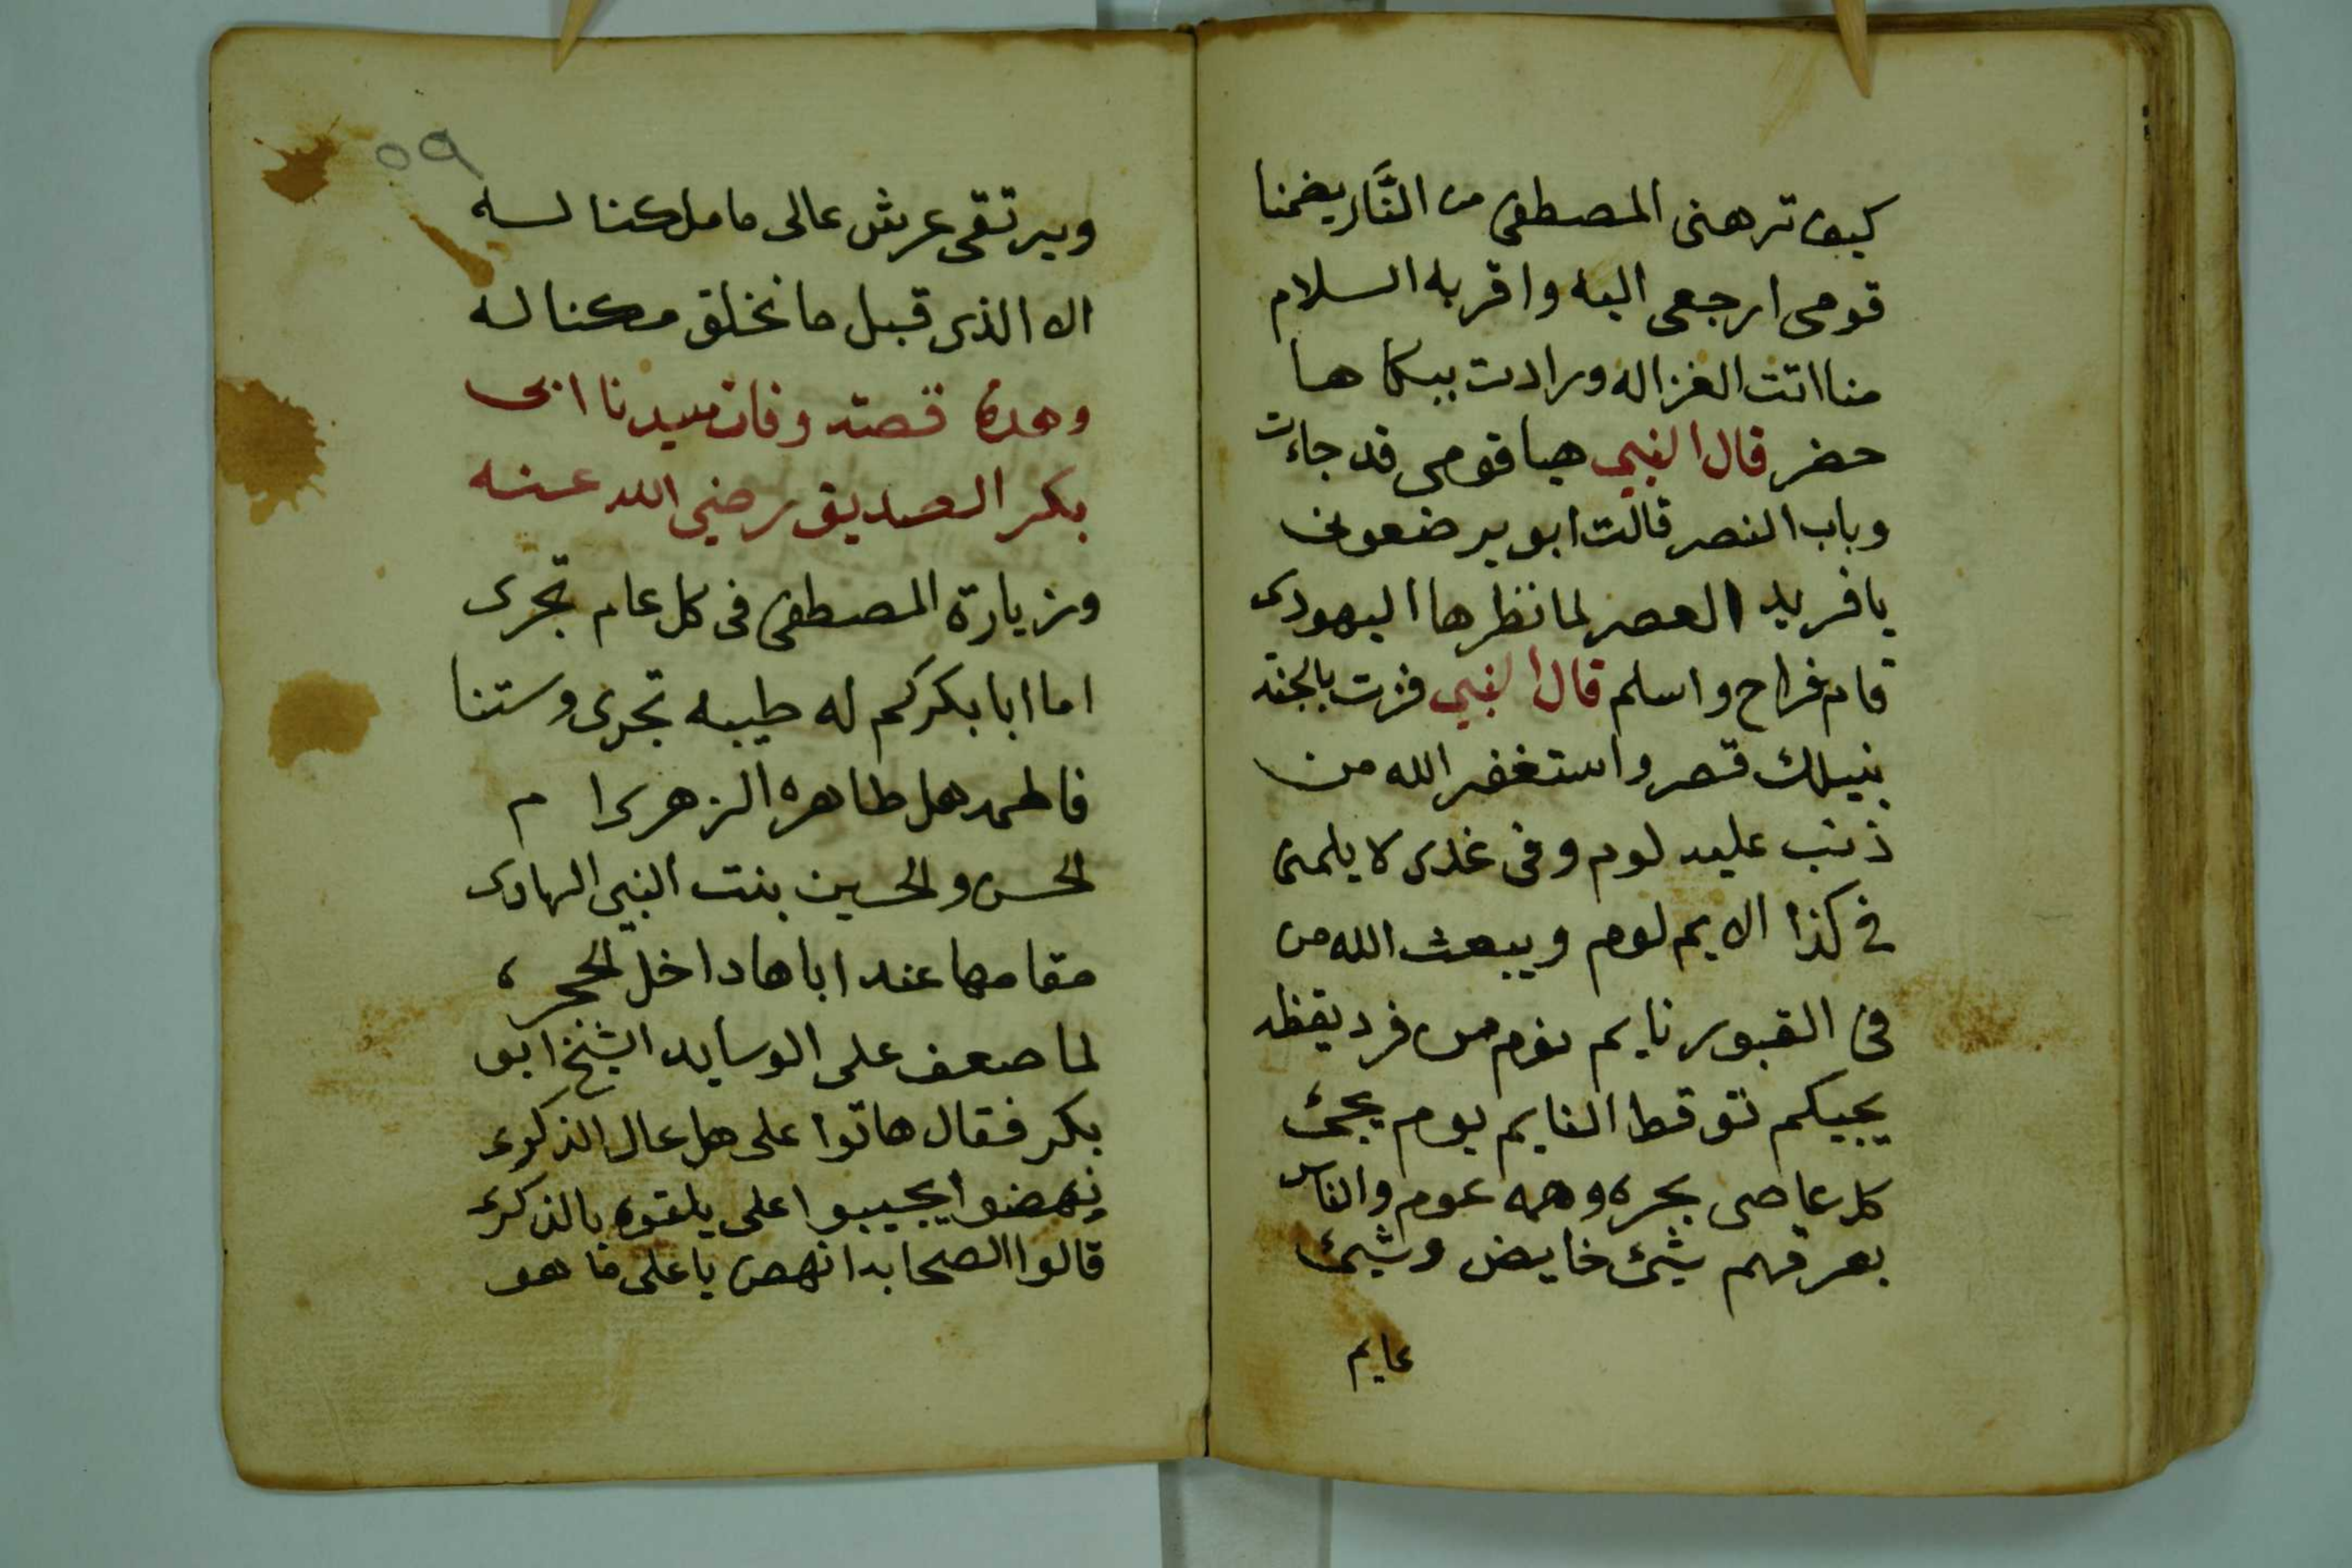 كيف ترهنى المصطفى من النَّار يضمنا
قومى ارجعى اليه واقر به السلام
منا اتت الغزاله ورادت ببكاها
حضر قال النبي هيا قومى قد جاءت
وباب النصر قالت ابو يرضعونى
يا فريد العصر لما نظرها اليهودى
قام فراح واسلم قال النبي فزت بالجنة
بنيلك قصر واستغفر الله من
ذنب عليه لوم وفى غدى لا يلمنى
في كذا الايم لوم ويبعث الله من
فى القبور نايم نوم من فرد يقظه
يجيكم توقظ النايم يوم يجئ
كل عاصى بحره وهمه عوم والناس
بعرقهم شيئ خايض وشيئ
عايم
٥٩
ويرتقى عرش عالى ما ملكنا له
الا الذى قبل ما نخلق مكنا له
وهده قصة وفات سيدنا ابى
بكر الصديق رضي الله عنه
وزيارة المصطفى فى كل عام تجرى
اما ابا بكر كم له طيبه تجرى وستنا
فاطمه هل طاهره الزهرى ام
الحسن والحسين بنت النبي الهادى
مقامها عند اباها داخل الحجره
لما صعف على الوسايد الشيخ ابو
بكر فقال هاتوا على هل عال الذكرى
نهضوا يجيبوا على يلقوه بالذكرى
قالوا الصحابه انهص يا على ما هو